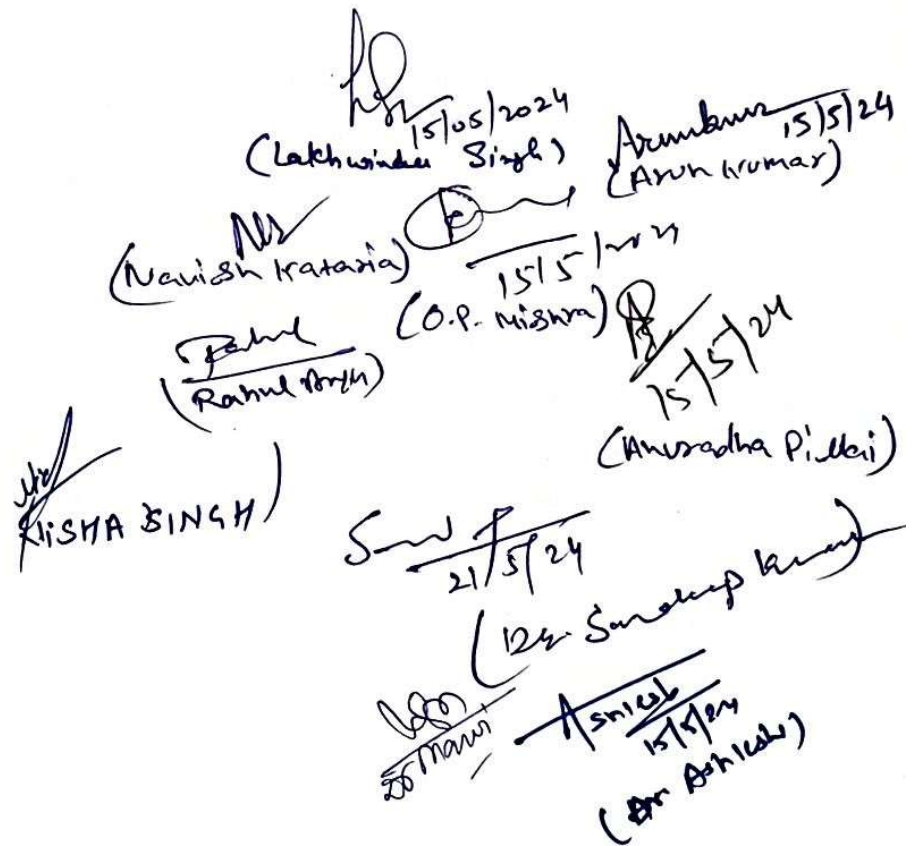 15/05/2024
(Lakhwinder Singh)
Arunkumar 15/5/24
(Arun Kumar)
(Navish Kataria)
15/5/2024
(O.P. Mishra)
Rahul
(Rahul
15/5/24
(Anuradha Pillai)
NISHA SINGH)
21/5/24
(Dr. Sandeep Kumar)
Ashiesh
15/5/24
(Dr Ashiesh)